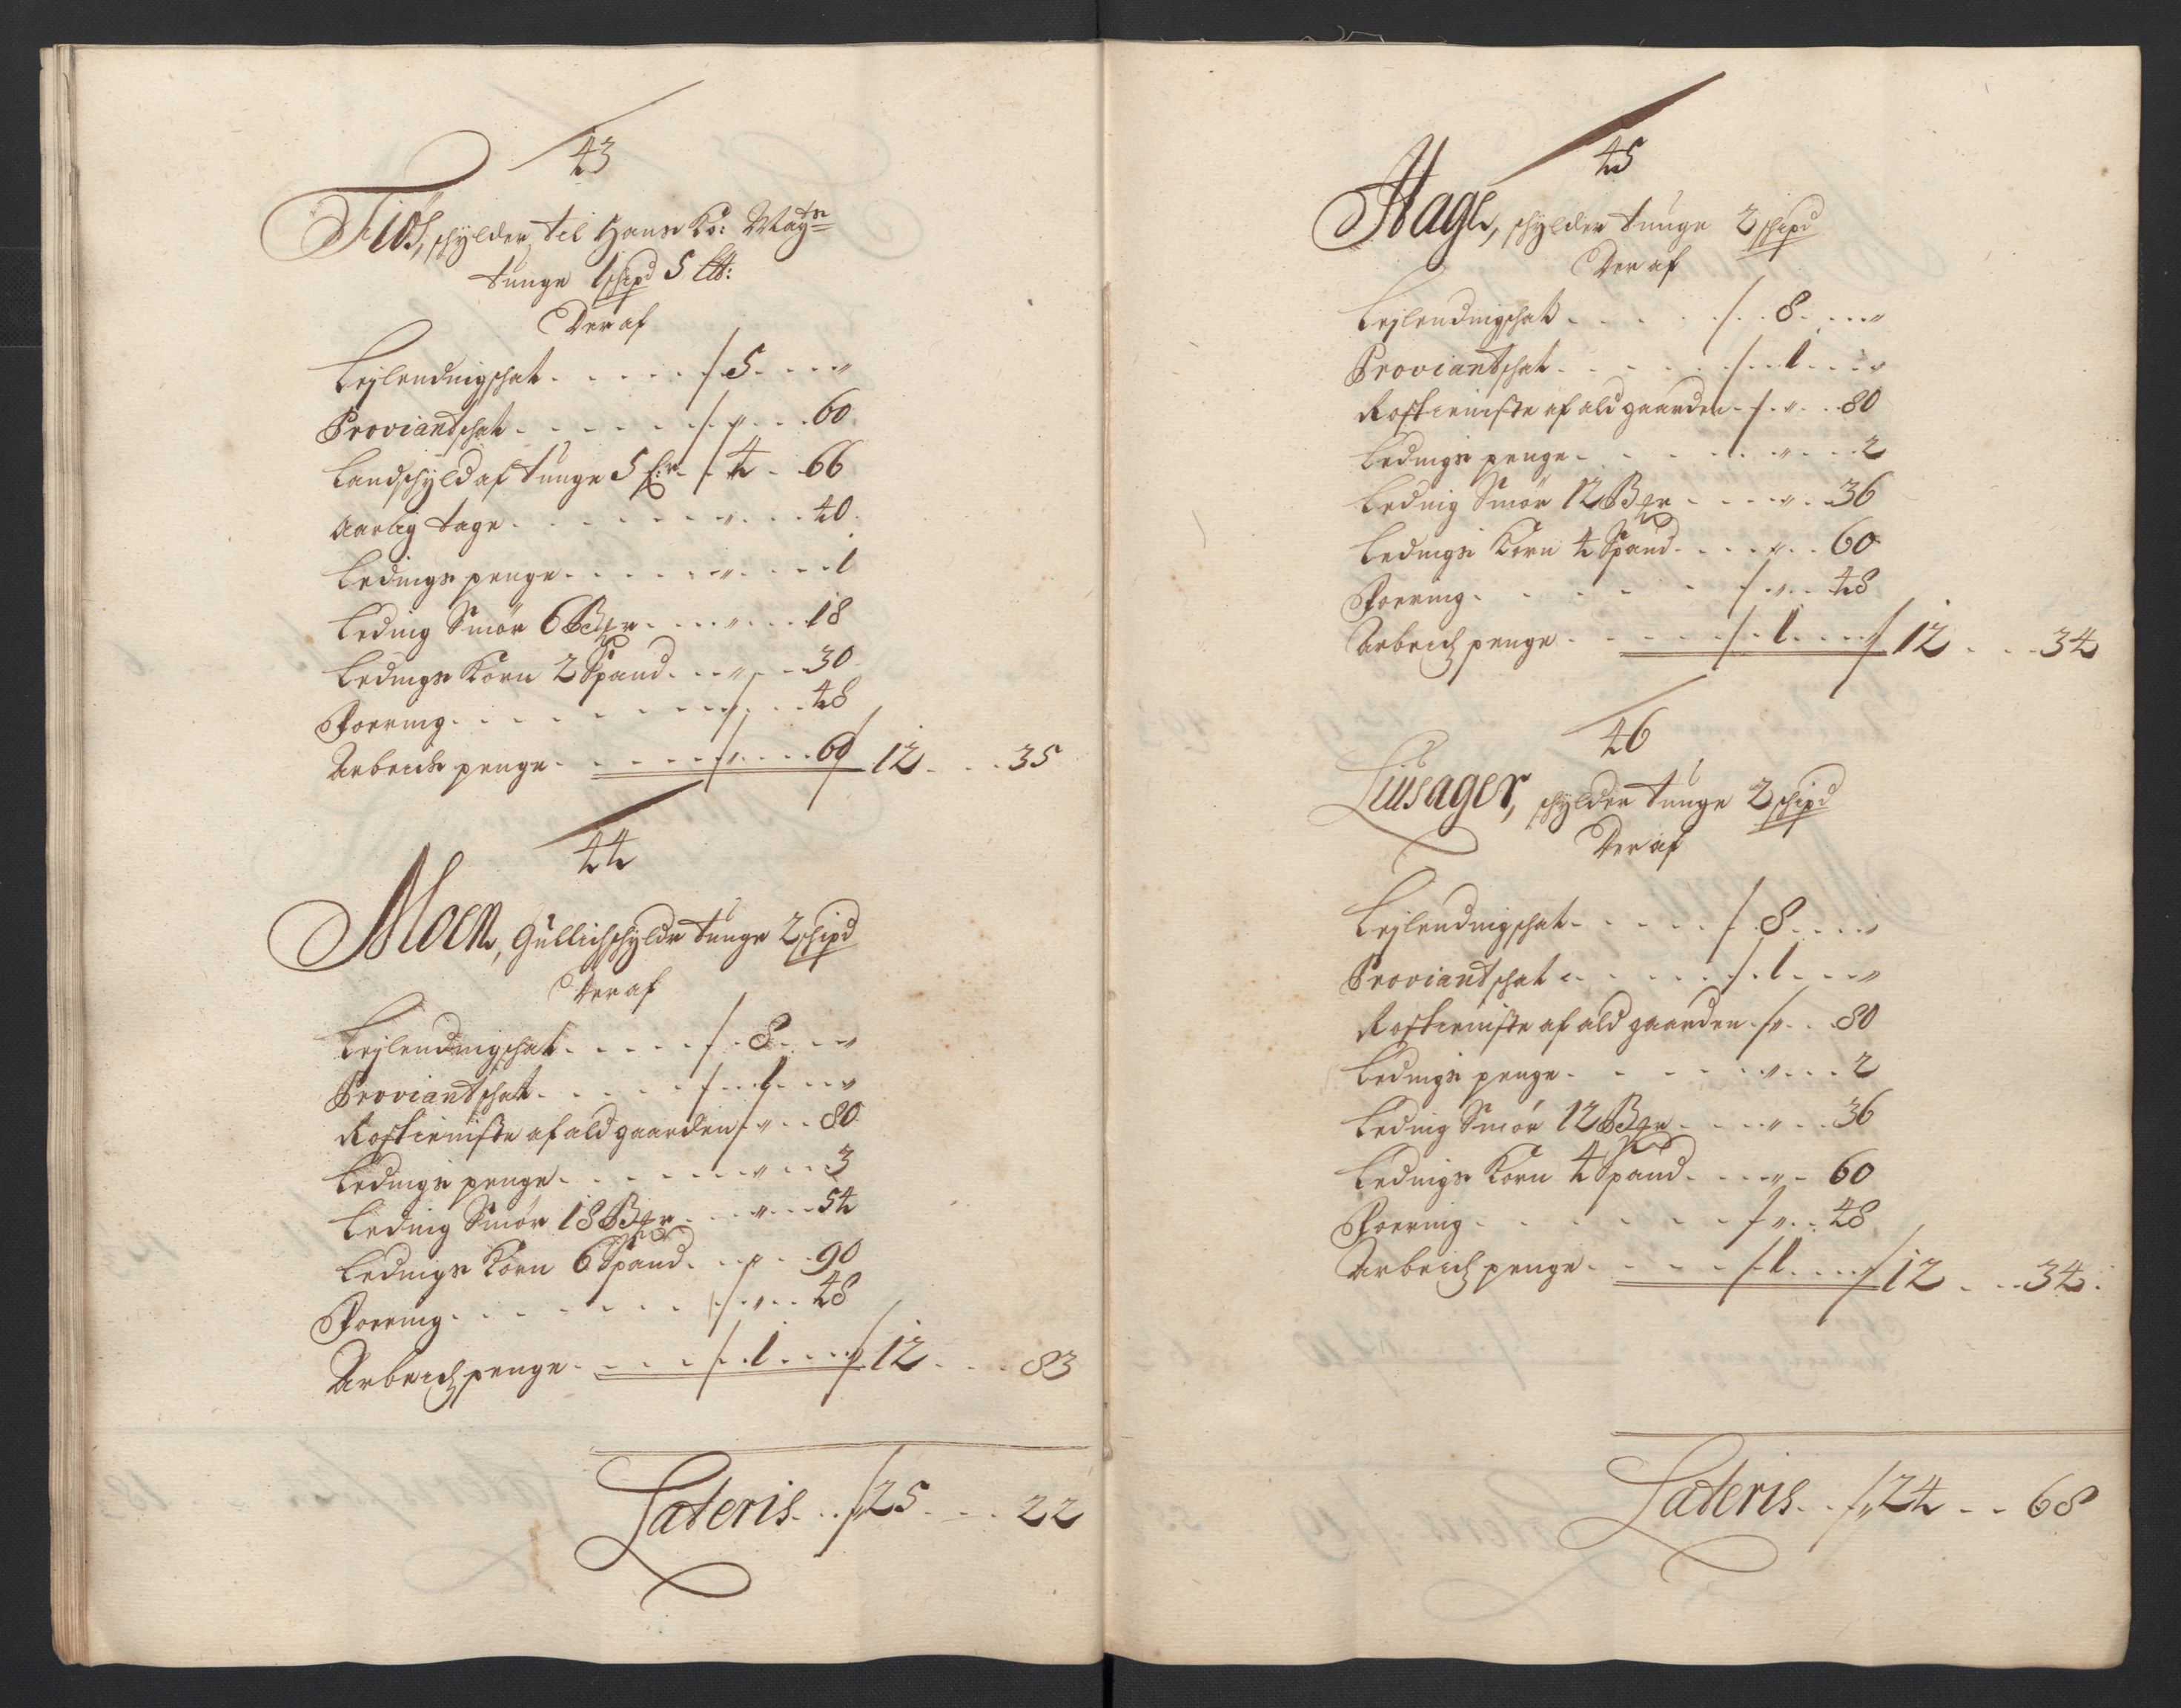 43
Fiøs, schylder til Hans Ko: Maÿts
tunge 1 schpd 5 ℔:
Der af
Leylendingschat . . . . . / 5 . . . . "
Proviantschat . . . . . . / " . . . 60
Landschyld af tunge 5 / 4 . 66
Aarlig tage . . . . . . . " . . . 40
Ledings penge . . . . . " . . . . 1
Leding Smør 6 Bpr . . . . " . . . 18
Ledings Korn 2 Spand . . . " . . . 30
Foering . . . . . . . . " . . . 48
Arbeids penge . . . . . / " . . . 60 / 12 . . . 35
44
Moen, Gullich schylder tunge 2 schpd
Der af
Leylendingschat . . . . . / . 8 . . . "
Proviantschat . . . . . / . . 1 . . . "
Rostieniste af ald gaarden / " . . 80
Ledings penge . . . . . . . " . . . 3
Leding Smør 18 Bpr . . . " . . . 54
Ledings Korn 6 Spand . . . " . . 90
Foering . . . . . . . . / . " . . 48
Arbeids penge . . . . . / . 1 . . . " / 12 . . . . 83
Lateris . . . / 25 . . . . 22
45
Hage, schylder tunge 2 schpd
Der af
Leylendingschat . . . . . / . . 8 . . . . "
Proviantschat . . . . . . / . . 1 . . . . "
Rostieniste af ald gaarden . / . " . . 80
Ledings penge . . . . . . . " . . . 2
Leding Smør 12 Bpr . . . . " . . 36
Ledings Korn 4 Spand . . . . " . . 60
Foering . . . . . . / . " . . 48
Arbeids penge . . . . . / . 1 . . . . / 12 . . . 34
46
Liusager, schylder tunge 2 schipd
Der af
Leylendingschat . . . . . / . 8 . . . . "
Proviantschat . . . . . . / . 1 . . . "
Rostieniste af ald gaarden . / " . . 80
Ledings penge . . . . . . " . . . 2
Leding Smør 12 Bpr . . . . " . . 36
Ledings Korn 4 Spand . . . . " . 60
Foering . . . . . . . / " . . 48
Arbeids penge . . . . . / . 1 . . . . / 12 . . . 34
Lateris . . / 24 . . . 68